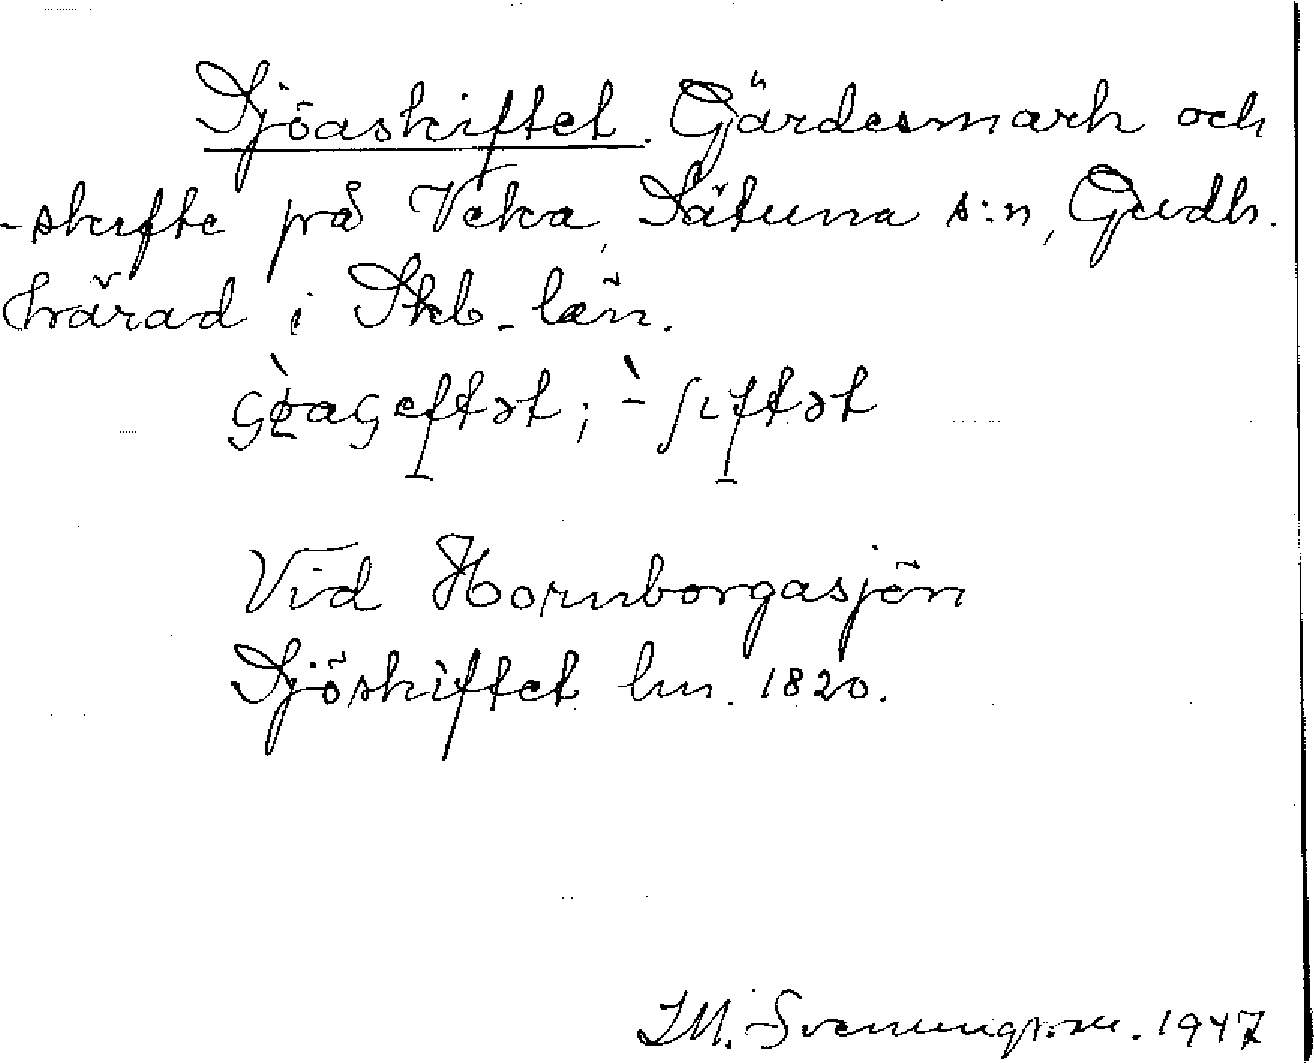 Sjöaskiftet. Gärdesmark och
-skifte på Veka, Sätuna s:n, Gudh.
härad i Skb. län.
Vid Hornborgasjön
Sjöskiftet lm. 1820.
1947